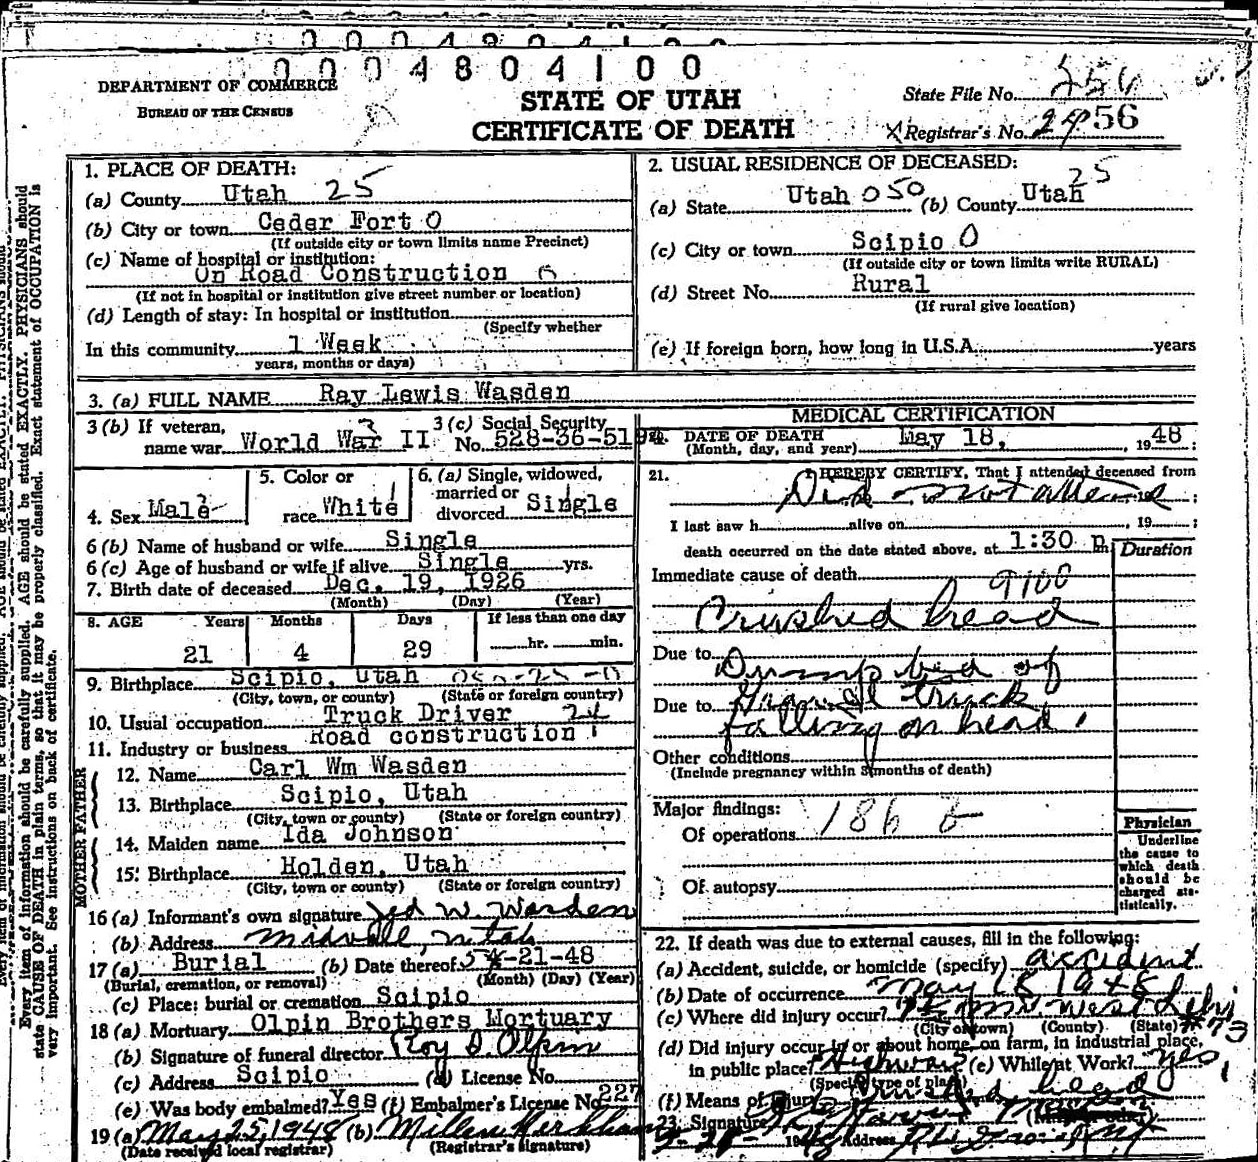 00048041 00
DEPARTMENT OF COMMERCE
BUREAU OF THE CENSUS
STATE OF UTAH
CERTIFICATE OF DEATH
State File No.
Registrar's No. 56
1. PLACE OF DEATH:
(a) County Utah 25
(b) City or town Ceder Fort 0
(If outside city or town limits name Precinct)
(c) Name of hospital or institution:
On Road Construction
(If not in hospital or institution give street number or location)
(d) Length of stay: In hospital or institution
(Specify whether
In this community 1 Week
years, months or days)
2. USUAL RESIDENCE OF DECEASED:
(a) State Utah 050 (b) County Utah 25
(c) City or town Scipio 0
(If outside city or town limits write RURAL)
(d) Street No. Rural
(If rural give location)
(e) If foreign born, how long in U.S.A. years
3. (a) FULL NAME Ray Lewis Wasden
3 (b) If veteran, name war World War II
3 (c) Social Security No. 528-36-519
4. Sex Male
5. Color or race White
6. (a) Single, widowed, married or divorced Single
6 (b) Name of husband or wife Single
6 (c) Age of husband or wife if alive Single yrs.
7. Birth date of deceased Dec. 19, 1926
(Month) (Day) (Year)
8. AGE Years Months Days If less than one day
21 4 29 hr. min.
9. Birthplace Scipio, Utah
(City, town, or county) (State or foreign country)
10. Usual occupation Truck Driver 24
11. Industry or business Road construction
FATHER
12. Name Carl Wm Wasden
13. Birthplace Scipio, Utah
(City, town or county) (State or foreign country)
MOTHER
14. Maiden name Ida Johnson
15. Birthplace Holden, Utah
(City, town or county) (State or foreign country)
16 (a) Informant's own signature Jed W. Wasden
(b) Address Midvale, Utah
17 (a) Burial (b) Date thereof 5-21-48
(Burial, cremation, or removal) (Month) (Day) (Year)
(c) Place: burial or cremation Scipio
18 (a) Mortuary Olpin Brothers Mortuary
(b) Signature of funeral director Roy D. Olpin
(c) Address Scipio (d) License No.
(e) Was body embalmed? Yes (f) Embalmer's License No. 227
19 (a) May 25, 1948 (b)
(Date received local registrar) (Registrar's signature)
MEDICAL CERTIFICATION
DATE OF DEATH
(Month, day, and year) May 18, 1948
21. I HEREBY CERTIFY, That I attended deceased from
Did not attend
I last saw h alive on , 19 ;
death occurred on the date stated above, at 1:30 p m
Duration
Immediate cause of death
Crushed head
Due to Dump bed of
Due to Gravel truck
falling on head.
Other conditions
(Include pregnancy within 3 months of death)
Major findings:
Of operations 186
Of autopsy
Physician
Underline
the cause to
which death
should be
charged sta-
tistically.
22. If death was due to external causes, fill in the following:
(a) Accident, suicide, or homicide (specify) accident
(b) Date of occurrence May 18 1948
(c) Where did injury occur? west Lehi
(City or town) (County) (State) #73
(d) Did injury occur in or about home, on farm, in industrial place,
in public place? Highway (e) While at Work? yes
(Specify type of place)
(f) Means of Injury Crushed head
23. Signature
Address
Every item of information should be carefully supplied. AGE should be stated EXACTLY. PHYSICIANS should
state CAUSE OF DEATH in plain terms, so that it may be properly classified. Exact statement of OCCUPATION is
very important. See instructions on back of certificate.